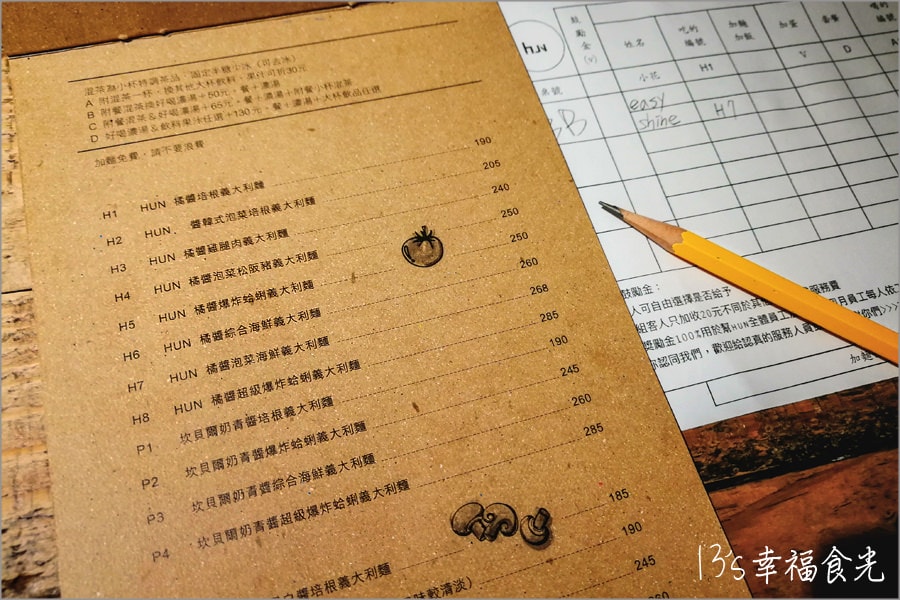 混茶為小杯特調茶品，固定半糖少冰（可去冰）
A 附混茶一杯，換其他大杯飲料、果汁可折30元
B 附餐混茶換好喝濃湯+50元，餐+濃湯
C 附餐混茶&好喝濃湯+65元，餐+濃湯+附餐小杯混茶
D 好喝濃湯&飲料果汁任選+130元，餐+濃湯+大杯飲品任選
加麵免費，請不要浪費
H1 HUN 橘醬培根義大利麵 190
H2 HUN. 醬韓式泡菜培根義大利麵 205
H3 HUN 橘醬雞腿肉義大利麵 240
H4 HUN 橘醬泡菜松阪豬義大利麵 250
H5 HUN 橘醬爆炸蛤蜊義大利麵 250
H6 HUN 橘醬綜合海鮮義大利麵 260
H7 HUN 橘醬泡菜海鮮義大利麵 268
H8 HUN 橘醬超級爆炸蛤蜊義大利麵 285
P1 坎貝爾奶青醬培根義大利麵 190
P2 坎貝爾奶青醬爆炸蛤蜊義大利麵 245
P3 坎貝爾奶青醬綜合海鮮義大利麵 260
P4 坎貝爾奶青醬超級爆炸蛤蜊義大利麵 285
白醬培根義大利麵 185
味較清淡） 190
245
260
HUN
鼓勵金(V) 姓名 吃的編號 加麵加飯 加蛋 套餐 喝的編號
桌號 小花 H1 V D
easy shine H7
鼓勵金：
人可自由選擇是否給予 服務費
組客人只加收20元不同於其 月員工每人依
獎勵金100%用於幫HUN全體員工 你們>>>
你認同我們，歡迎給認真的服務人員
加麵
13's幸福食光